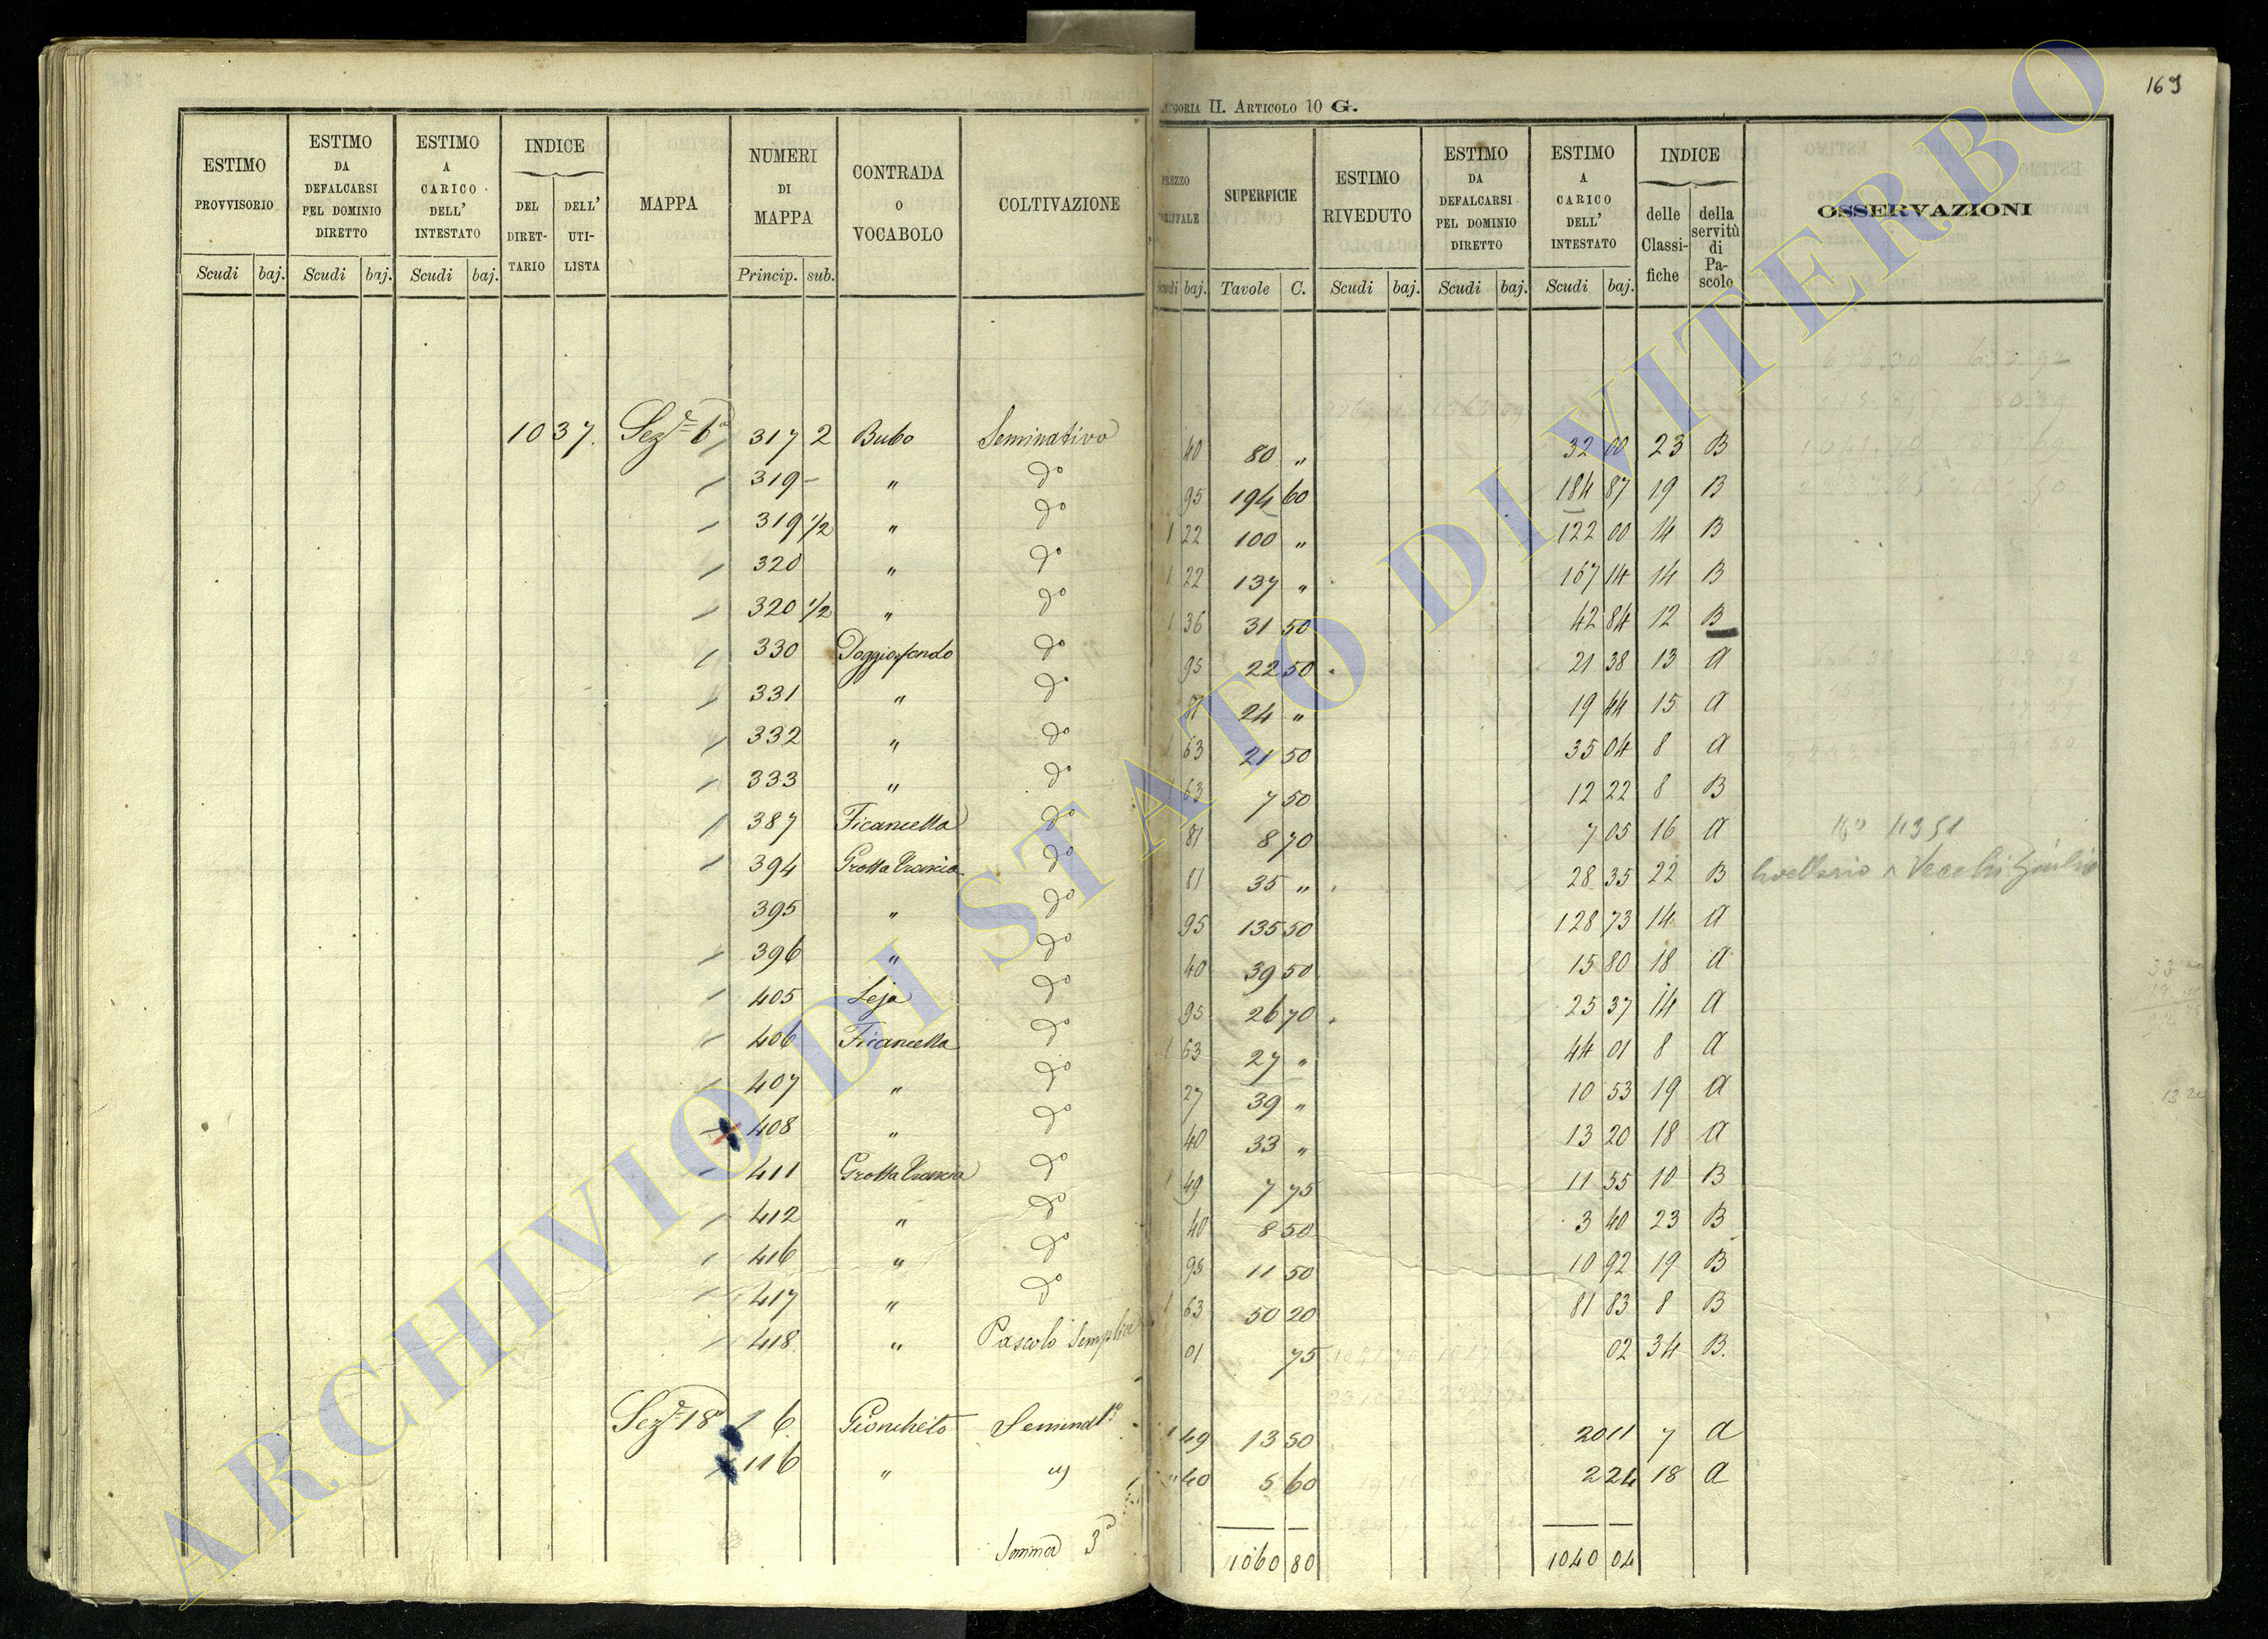 169
CATEGORIA II. ARTICOLO 10 G.
ESTIMO PROVVISORIO
ESTIMO DA DEFALCARSI PEL DOMINIO DIRETTO
ESTIMO A CARICO DELL' INTESTATO
INDICE
DEL DIRETTARIO
DELL' UTILISTA
MAPPA
NUMERI DI MAPPA
CONTRADA O VOCABOLO
COLTIVAZIONE
PREZZO TARIFFALE
SUPERFICIE
ESTIMO RIVEDUTO
ESTIMO DA DEFALCARSI PEL DOMINIO DIRETTO
ESTIMO A CARICO DELL' INTESTATO
INDICE
delle Classifiche
della servitù di Pascolo
OSSERVAZIONI
Scudi baj. Scudi baj. Scudi baj. Princip. sub. Scudi baj. Tavole C. Scudi baj. Scudi baj. Scudi baj.
1037. Sez.e 6a 317 2 Bubo Seminativo 40 80 " 32 00 23 B
319 - " do 95 194 60 184 87 19 B
319 1/2 " do 1 22 100 " 122 00 14 B
320 " do 1 22 137 " 167 14 14 B
320 1/2 " do 1 36 31 50 42 84 12 B
330 Poggiofondo do 95 22 50 21 38 13 A
331 " do 81 24 " 19 44 15 A
332 " do 1 63 21 50 35 04 8 A
333 " do 1 63 7 50 12 22 8 B
387 Ficancella do 81 8 70 7 05 16 A
394 Grotta do 81 35 " 28 35 22 B livellario a Vecchi Giulio
395 " do 95 135 50 128 73 14 A
396 " do 40 39 50 15 80 18 A
405 Leja do 95 26 70 25 37 14 A
406 Ficancella do 1 63 27 " 44 01 8 A
407 " do 27 39 " 10 53 19 A
408 " do 40 33 " 13 20 18 A
411 Grotta do 1 49 7 75 11 55 10 B
412 " do 40 8 50 3 40 23 B
416 " do 95 11 50 10 92 19 B
417 " do 1 63 50 20 81 83 8 B
418 " Pascolo Semplice 01 75 02 34 B.
Sez.e 18a 6. Gioncheto Seminat.o 1 49 13 50 20 11 7 A
116 " " " 40 5 60 2 24 18 A
Somma 3a 1060 80 1040 04
ARCHIVIO DI STATO DI VITERBO